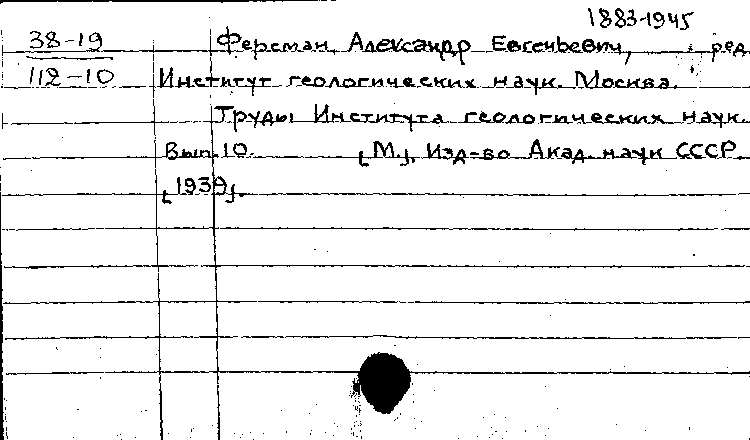 1883-1945
38-19 Ферсман, Александр Евгеньевич, ред.
112-10 Институт геологических наук. Москва.
Труды Института геологических наук.
Вып. 10. [М.], Изд-во Акад. наук СССР.
[1939].